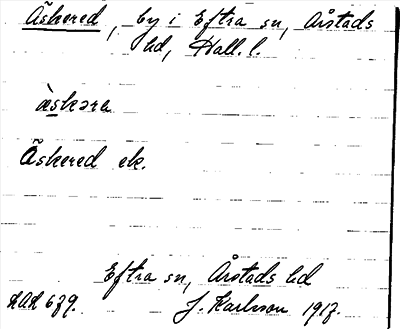 Äskered, by i Eftra sn, Årstads
hd, Hall. l.
äskəra
Äskered ek.
Eftra sn, Årstads hd
J. Karlsson 1917.